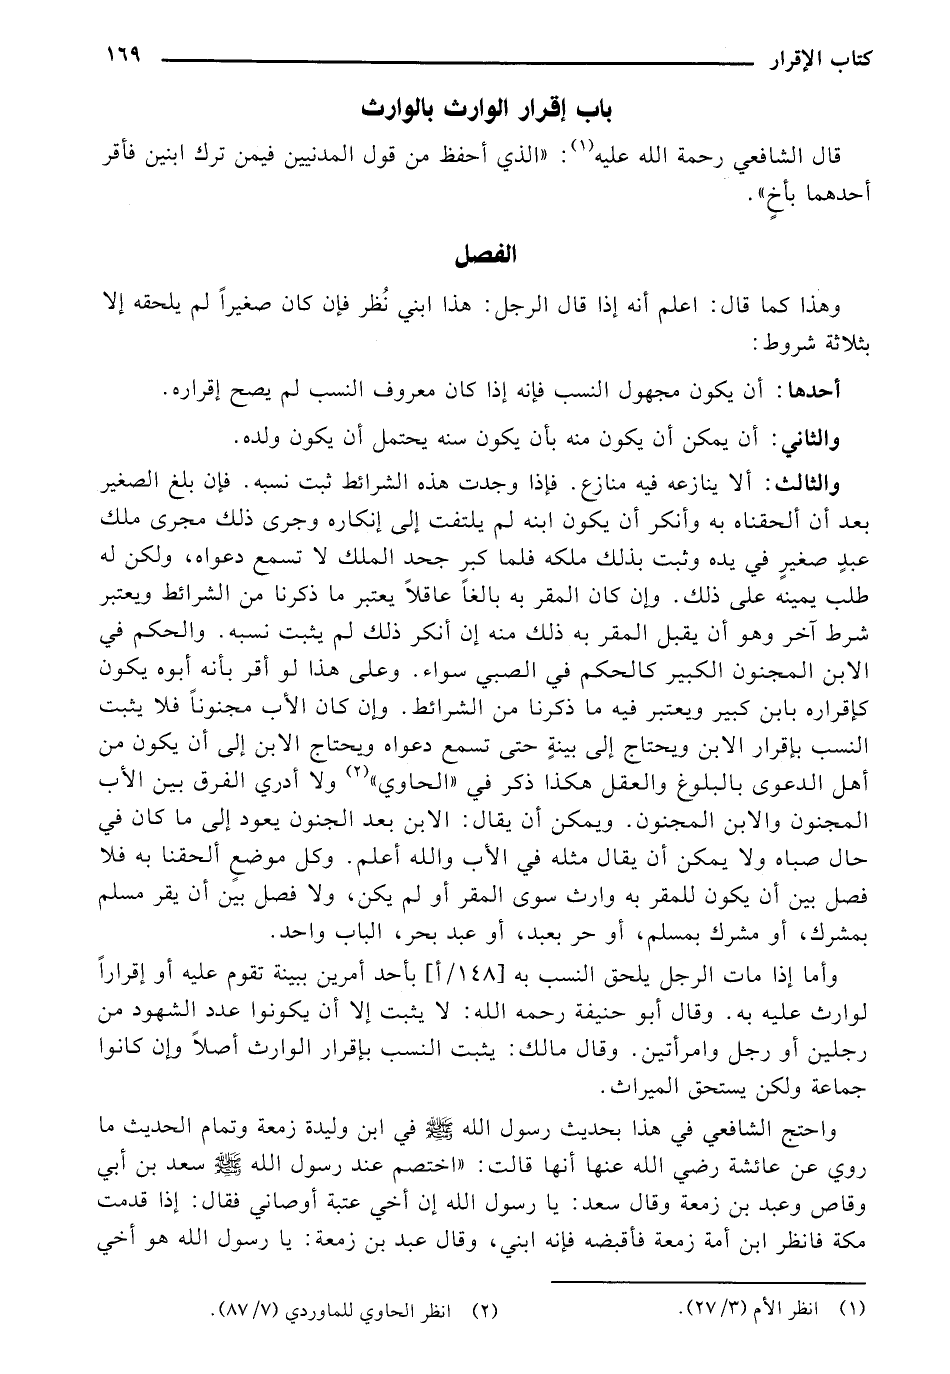 كتاب الإقرار ١٦٩
باب إقرار الوارث بالوارث
قال الشافعي رحمة الله عليه(١): «الذي أحفظ من قول المدنيين فيمن ترك ابنين فأقر
أحدهما بأخٍ».
الفصل
وهذا كما قال: اعلم أنه إذا قال الرجل: هذا ابني نُظر فإن كان صغيراً لم يلحقه إلا
بثلاثة شروط:
أحدها: أن يكون مجهول النسب فإنه إذا كان معروف النسب لم يصح إقراره.
والثاني: أن يمكن أن يكون منه بأن يكون سنه يحتمل أن يكون ولده.
والثالث: ألا ينازعه فيه منازع. فإذا وجدت هذه الشرائط ثبت نسبه. فإن بلغ الصغير
بعد أن ألحقناه به وأنكر أن يكون ابنه لم يلتفت إلى إنكاره وجرى ذلك مجرى ملك
عبدٍ صغيرٍ في يده وثبت بذلك ملكه فلما كبر جحد الملك لا تسمع دعواه، ولكن له
طلب يمينه على ذلك. وإن كان المقر به بالغاً عاقلاً يعتبر ما ذكرنا من الشرائط ويعتبر
شرط آخر وهو أن يقبل المقر به ذلك منه إن أنكر ذلك لم يثبت نسبه. والحكم في
الابن المجنون الكبير كالحكم في الصبي سواء. وعلى هذا لو أقر بأنه أبوه يكون
كإقراره بابن كبير ويعتبر فيه ما ذكرنا من الشرائط. وإن كان الأب مجنوناً فلا يثبت
النسب بإقرار الابن ويحتاج إلى بينةٍ حتى تسمع دعواه ويحتاج الابن إلى أن يكون من
أهل الدعوى بالبلوغ والعقل هكذا ذكر في «الحاوي»(٢) ولا أدري الفرق بين الأب
المجنون والابن المجنون. ويمكن أن يقال: الابن بعد الجنون يعود إلى ما كان في
حال صباه ولا يمكن أن يقال مثله في الأب والله أعلم. وكل موضعٍ ألحقنا به فلا
فصل بين أن يكون للمقر به وارث سوى المقر أو لم يكن، ولا فصل بين أن يقر مسلم
بمشرك، أو مشرك بمسلم، أو حر بعبد، أو عبد بحر، الباب واحد.
وأما إذا مات الرجل يلحق النسب به [١٤٨/أ] بأحد أمرين ببينة تقوم عليه أو إقراراً
لوارث عليه به. وقال أبو حنيفة رحمه الله: لا يثبت إلا أن يكونوا عدد الشهود من
رجلين أو رجل وامرأتين. وقال مالك: يثبت النسب بإقرار الوارث أصلاً وإن كانوا
جماعة ولكن يستحق الميراث.
واحتج الشافعي في هذا بحديث رسول الله ﷺ في ابن وليدة زمعة وتمام الحديث ما
روي عن عائشة رضي الله عنها أنها قالت: «اختصم عند رسول الله ﷺ سعد بن أبي
وقاص وعبد بن زمعة وقال سعد: يا رسول الله إن أخي عتبة أوصاني فقال: إذا قدمت
مكة فانظر ابن أمة زمعة فأقبضه فإنه ابني، وقال عبد بن زمعة: يا رسول الله هو أخي
(١) انظر الأم (٣/٢٧). (٢) انظر الحاوي للماوردي (٧/٨٧).